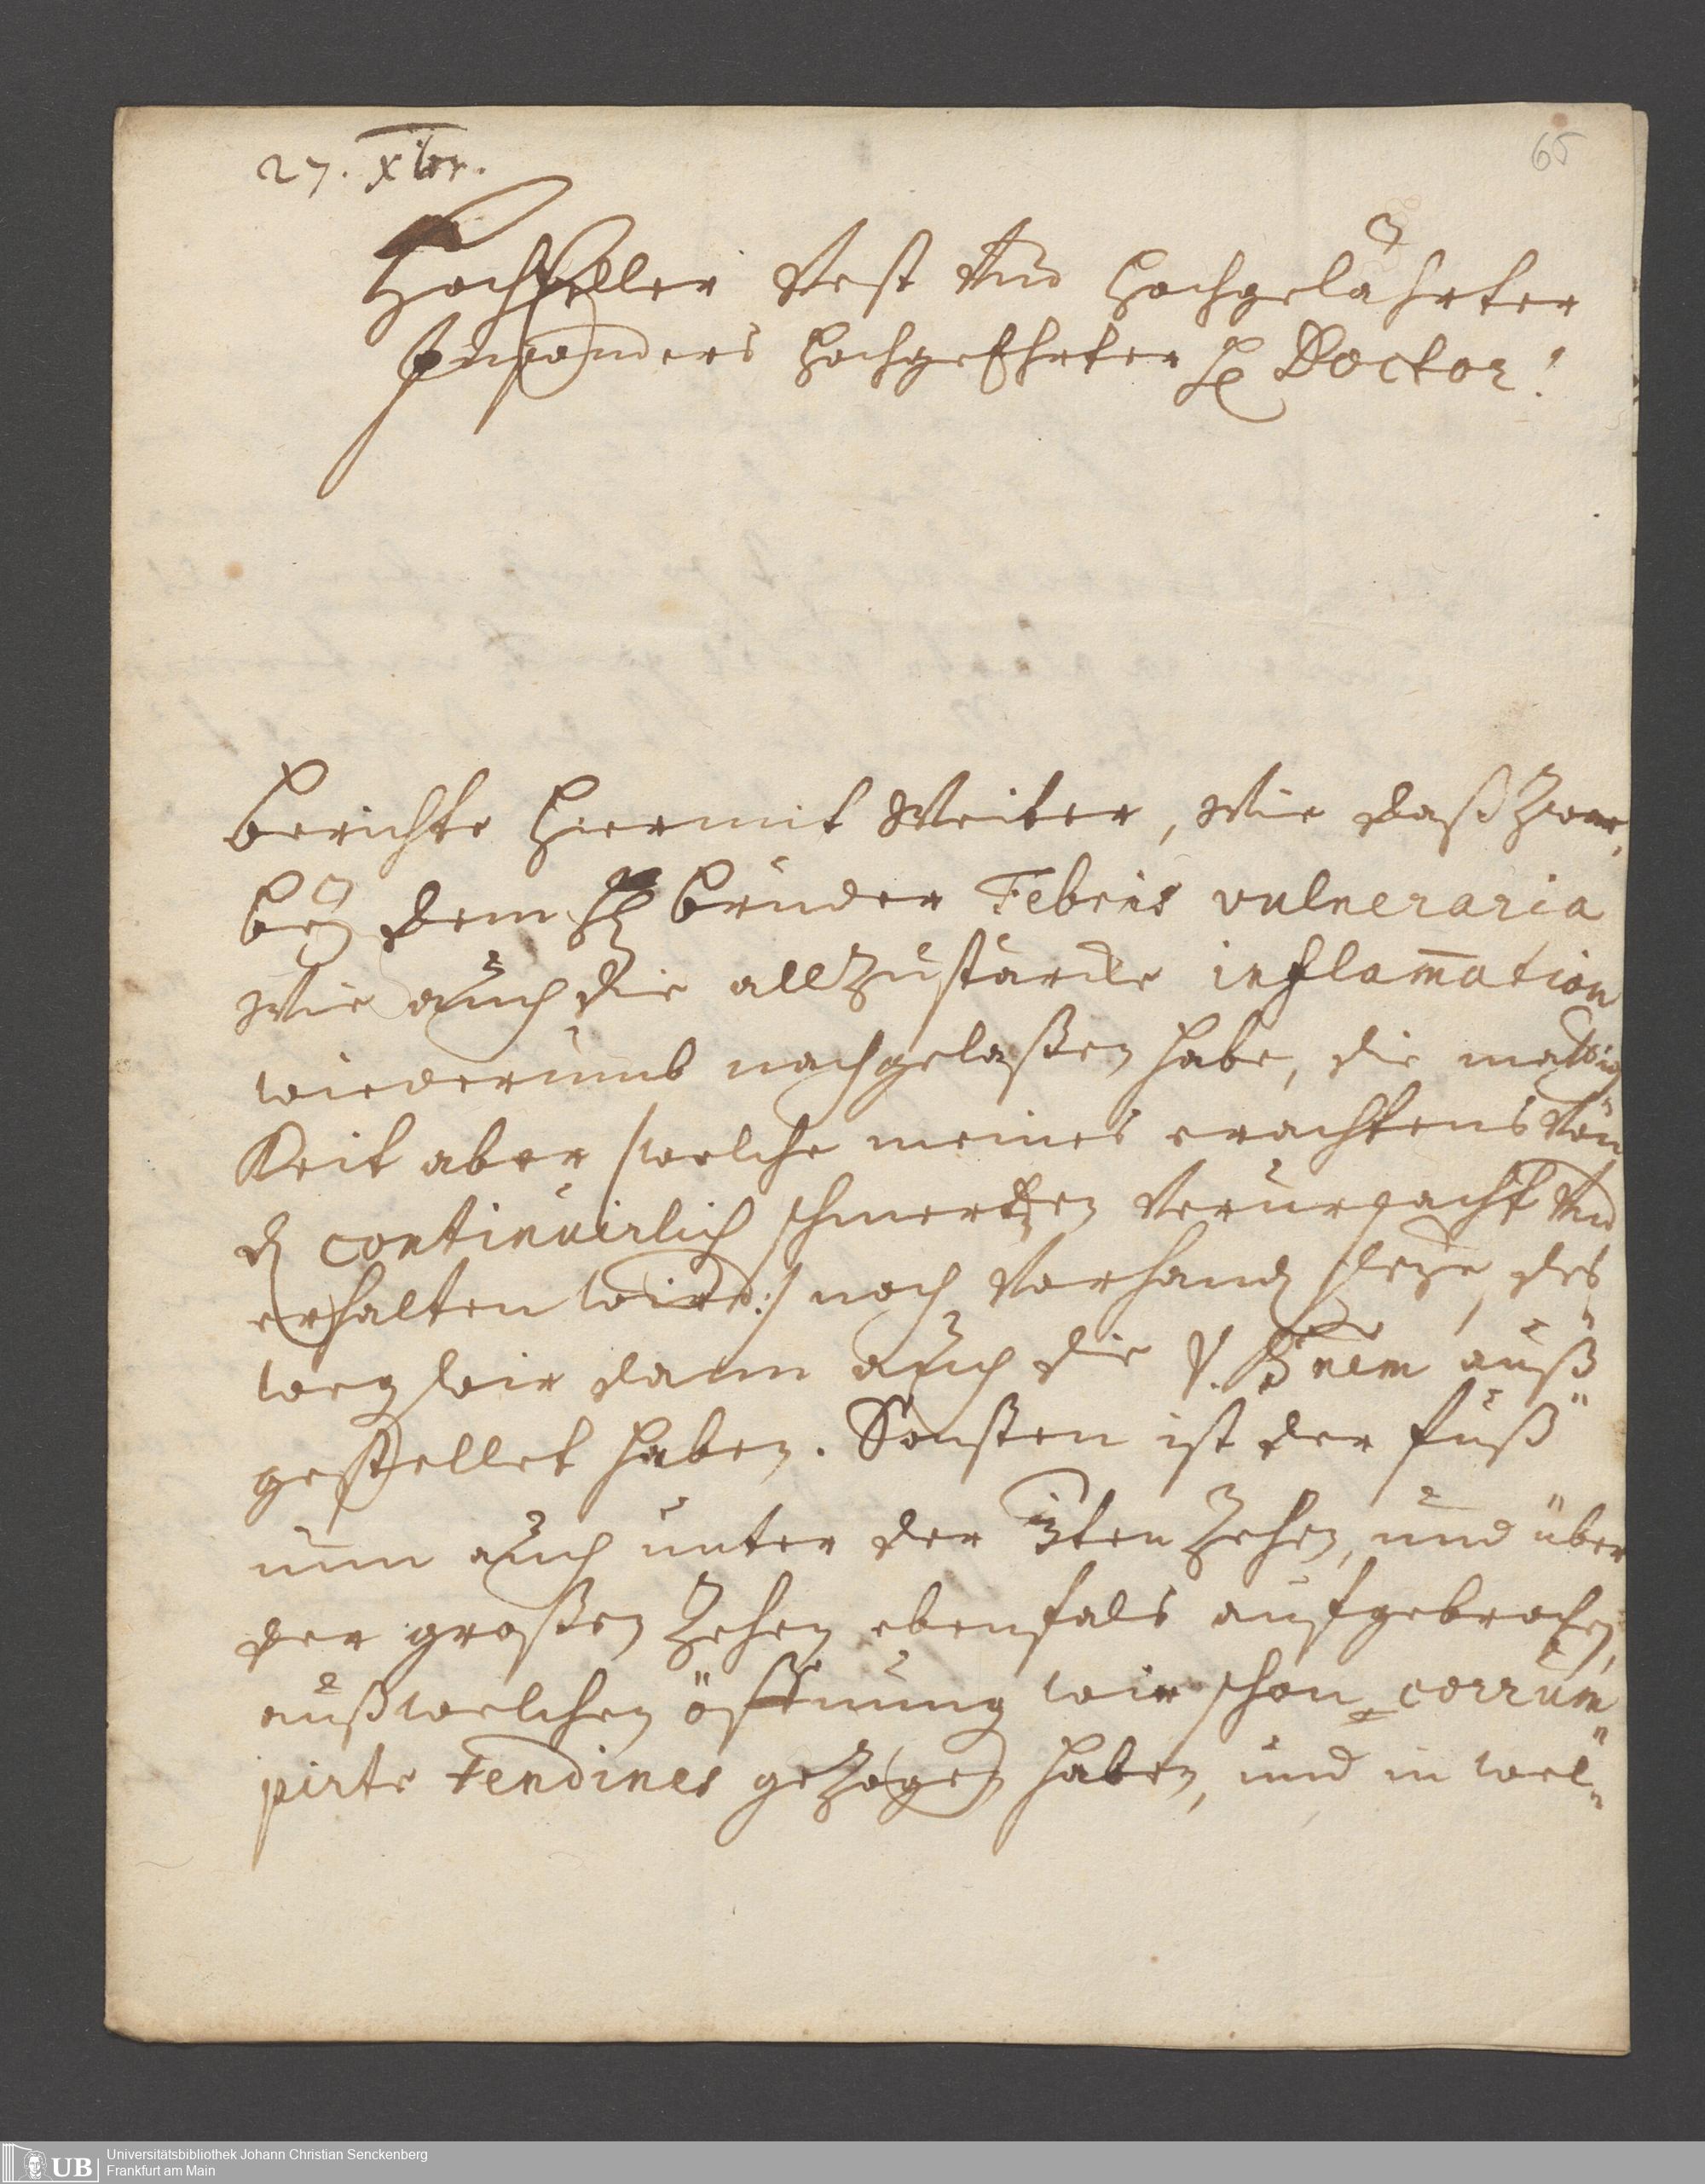 27. Xbr.
65
HochEdler Vest Und Hochgelährter
Insonders HochgeEhrter H Doctor!
berichte Hiermit Weiter, Wie daß Zwar,
beÿ dem H bruder Febris vulneraria
Wie auch die allzustarcke inflam̄ation
wiederumb nachgelaßen habe, die mattig
Keit aber /welche meines erachtens Von
d continuirlich schmertzen Verursacht Und
erhalten wird:/ noch Vorhand seÿe, des
weg wir dann auch die auß"
gestellet haben. Sonsten ist der fuß"
nun auch unter der 3ten Zehen, und über
der großen Zehen ebenfals aufgebrochen,
auß welchen öffnung wir schon corrum
pirte Tendines gezogen haben, und in wel"
UB Universitätsbibliothek Johann Christian Senckenberg
Frankfurt am Main